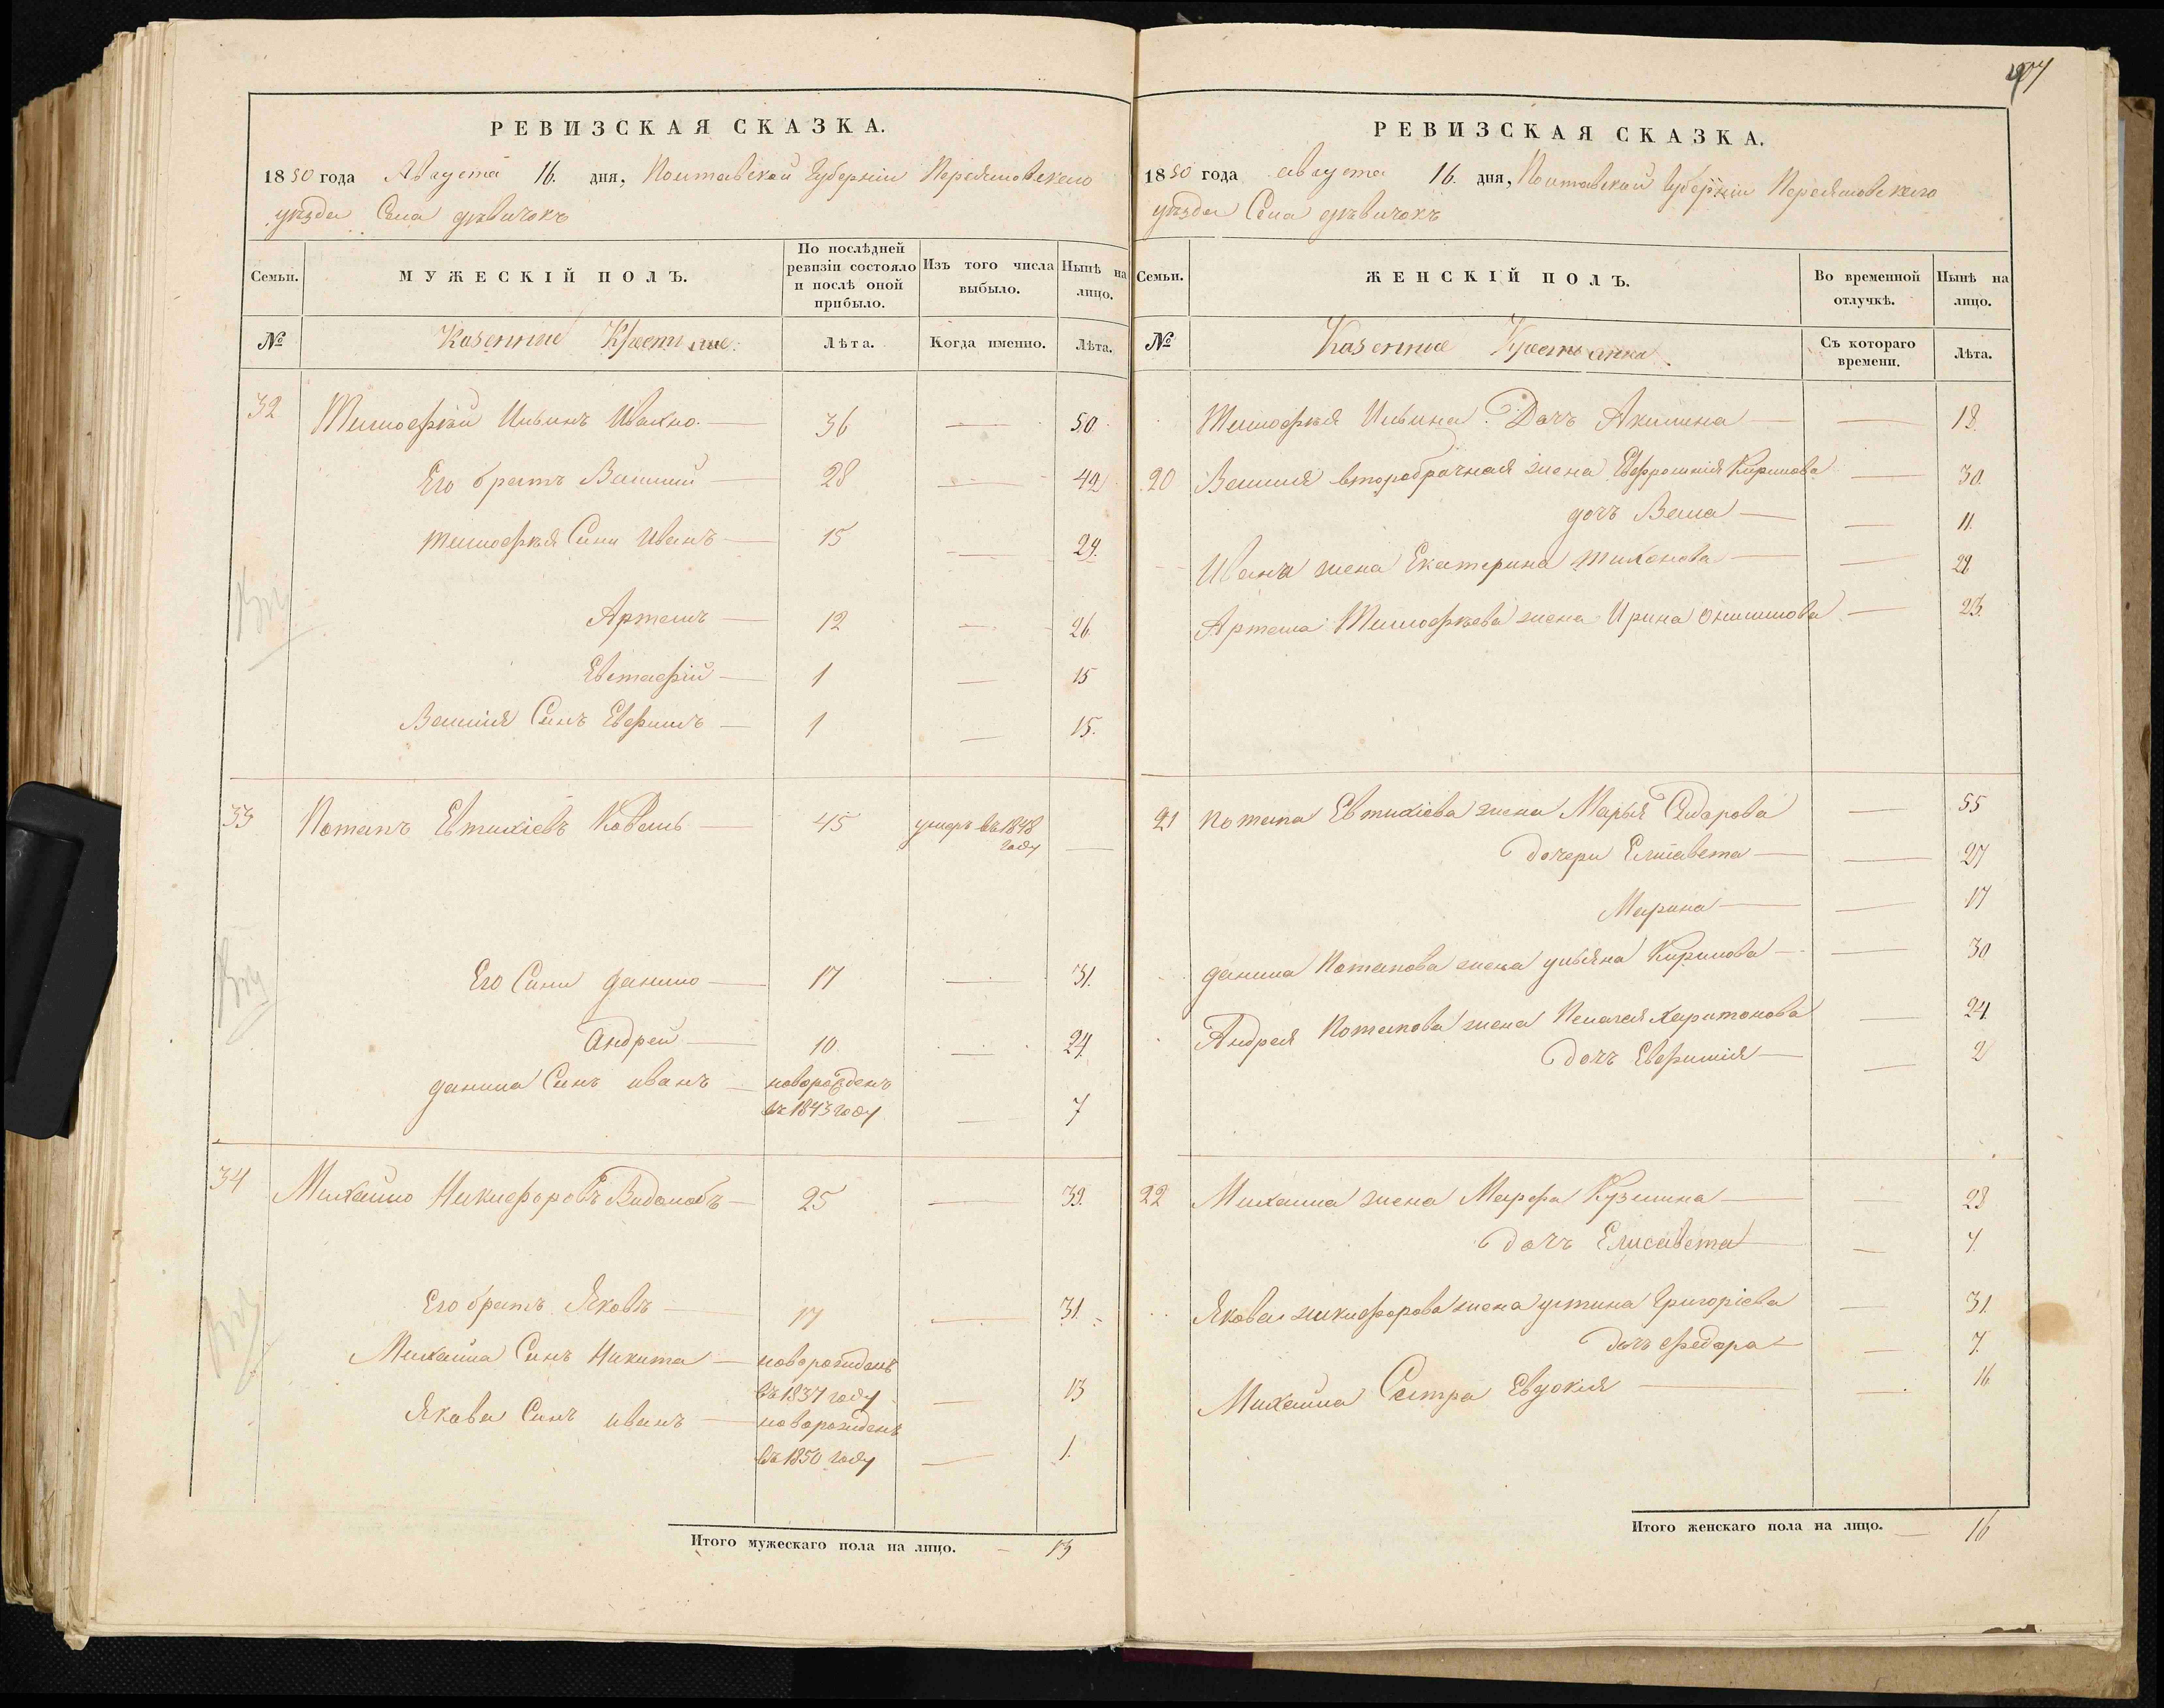 РЕВИЗСКАЯ СКАЗКА.
1850 года Августа 16. дня, Полтавской Губерніи Переяславского
уѣзда Села дѣвичокъ
Семьи.
МУЖЕСКІЙ ПОЛЪ.
По послѣдней ревизіи состояло и послѣ оной прибыло.
Изъ того числа выбыло.
Нынѣ на лицо.
№
Казенние Крестьяне:
Лѣта.
Когда именно.
Лѣта.
32 Тимофѣй Ильинъ Ивахно. — 36 — 50.
Его братъ Василий — 28 — 42
Тимофѣя Сини Иванъ — 15 — 29.
Артемъ — 12 — 26
Евстафій — 1 — 15
Василия Синъ Ефримъ — 1 — 15.
33 Потапъ Евтихіевъ Коваль — 45 умеръ въ 1848
году —
Его Сини данило — 17 — 31.
Андрей — 10 — 24.
данила Синъ иванъ — новорожденъ
въ 1843 году — 7
34 Михайло Никифоровъ — 25 — 39.
Его братъ Яковъ — 17 — 31.
Михайла Синъ Никита — новорожденъ
въ 1837 году — 13
Якова Синъ иванъ — новорожденъ
въ 1850 году — 1.
Итого мужескаго пола на лицо. — 13
РЕВИЗСКАЯ СКАЗКА.
1850 года августа 16. дня, Полтавской Губерніи Переяславского
уѣзда Села дѣвичокъ
Семьи.
ЖЕНСКІЙ ПОЛЪ.
Во временной отлучкѣ.
Нынѣ на лицо.
№
Казенние Крестьянки
Съ котораго времени.
Лѣта.
Тимофѣя Ильина Дочъ Акилина — — 18.
20 Василия второбрачная жена Ефросинія Кирилова — 30.
дочъ — — 11.
Ивана жена Екатерина тихонова — — 29
Артема Тимофѣева жена Ирина онисимова — 23.
21 Потапа Евтихіева жена Марья Сидорова — 55
дочери Елисавета — — 27
Марина — — 17
данила Потапова жена ульяна Кирилова — — 30
Андрея Потапова жена Пелагея харитонова — 24.
дочъ Ефимия — — 2
22 Михаила жена Марфа Кузмина — — 28
дочъ Елисавета — — 4.
Якова никифорова жена устина Григоріева — 31.
дочъ федора — — 7.
Михайла Сестра Евдокия — — 16
Итого женскаго пола на лицо. — 16